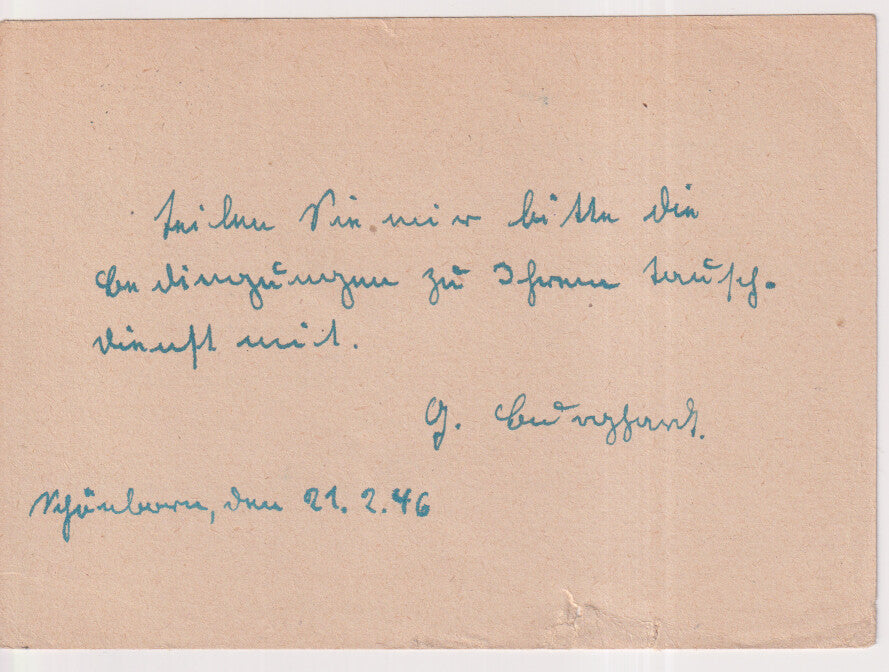 Teilen Sie mir bitte die
Bedingungen zu Ihrem Tausch-
dienst mit.
G. Burghardt.
Schönborn, den 21. 2. 46